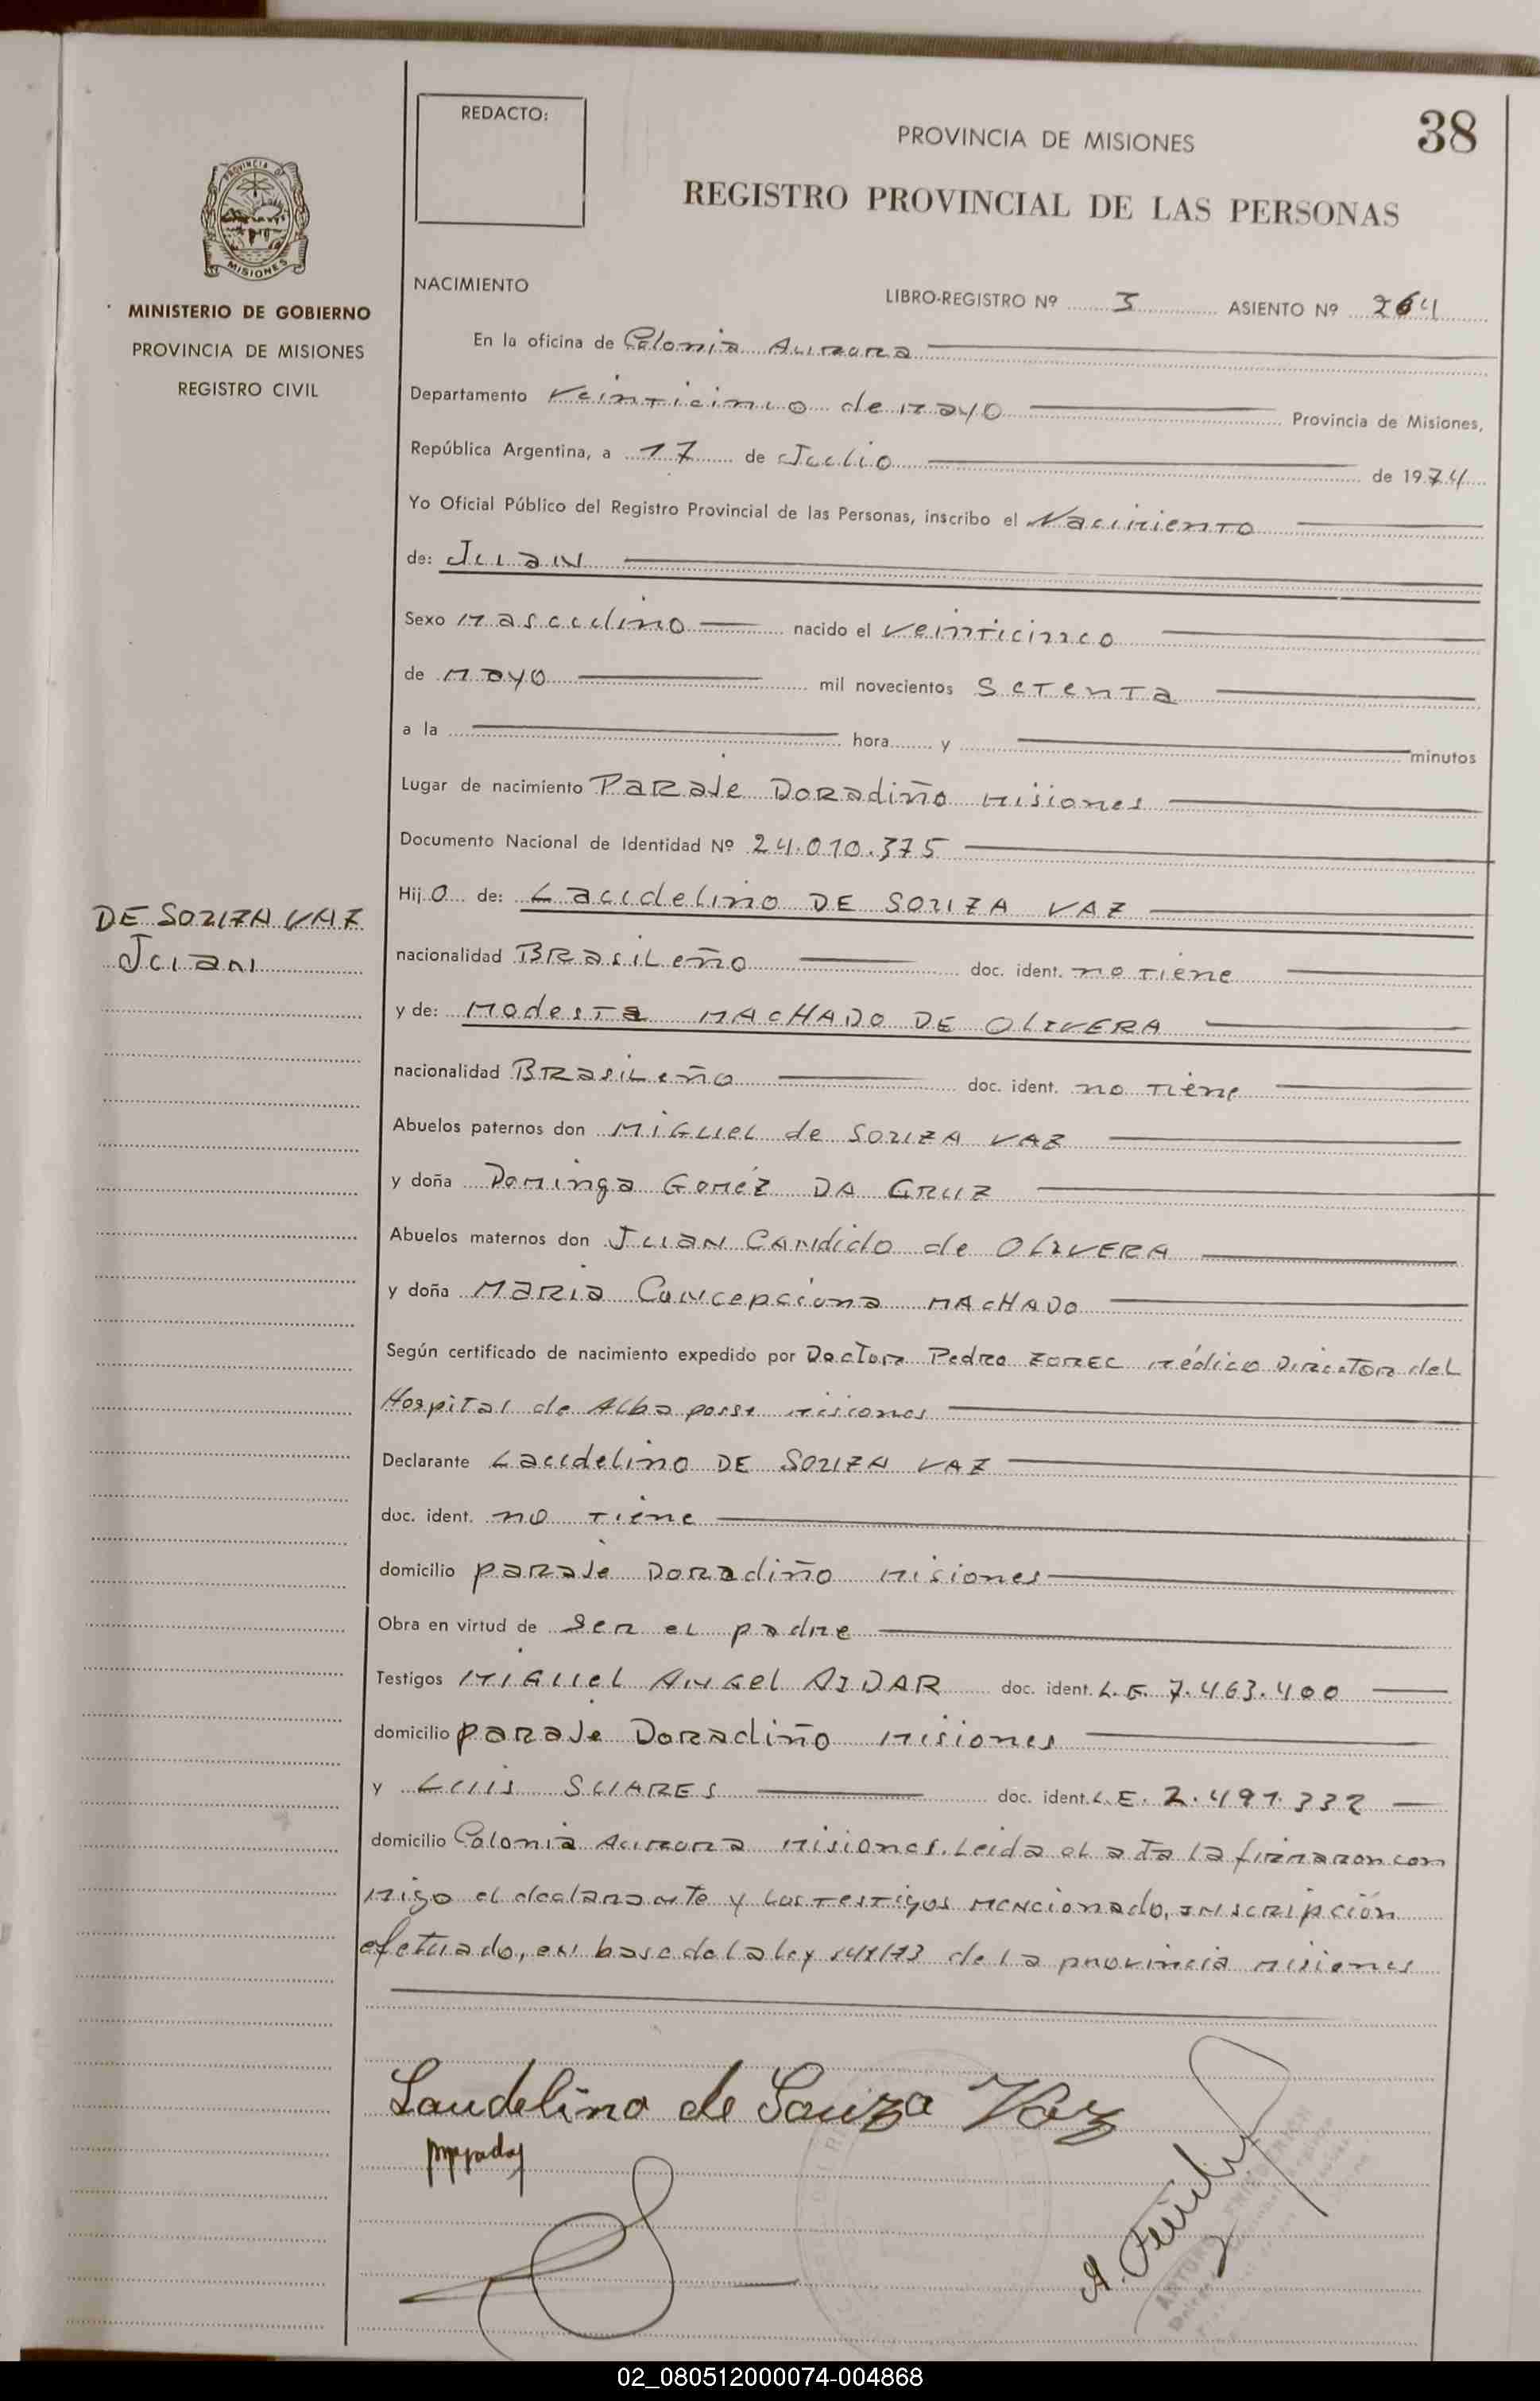 REDACTO:
38
PROVINCIA DE MISIONES
REGISTRO PROVINCIAL DE LAS PERSONAS
PROVINCIA DE
MISIONES
MINISTERIO DE GOBIERNO
PROVINCIA DE MISIONES
REGISTRO CIVIL
NACIMIENTO
LIBRO-REGISTRO Nº 3 ASIENTO Nº 264
En la oficina de Colonia Aurora
Departamento Veinticinco de Mayo Provincia de Misiones,
República Argentina, a 17 de Julio de 1974
Yo Oficial Público del Registro Provincial de las Personas, inscribo el Nacimiento
de: Juan
Sexo Masculino nacido el veinticinco
de Mayo mil novecientos Setenta
a la hora y minutos
Lugar de nacimiento Paraje Doradiño Misiones
Documento Nacional de Identidad Nº 24.010.375
DE SOUZA VAZ
Juan
Hijo de: Laudelino DE SOUZA VAZ
nacionalidad Brasileño doc. ident. no tiene
y de: Modesta MACHADO DE OLIVERA
nacionalidad Brasileña doc. ident. no tiene
Abuelos paternos don Miguel de SOUZA VAZ
y doña Dominga Goméz DA CRUZ
Abuelos maternos don Juan Candido de OLIVERA
y doña Maria Concepciona MACHADO
Según certificado de nacimiento expedido por Doctor Pedro ZOREC Médico Director del
Hospital de Alba posse Misiones
Declarante Laudelino DE SOUZA VAZ
doc. ident. no tiene
domicilio paraje Doradiño Misiones
Obra en virtud de Ser el padre
Testigos Miguel Angel AIDAR doc. ident. L.E. 7.463.400
domicilio paraje Doradiño Misiones
y Luis SUARES doc. ident. L.E. 2.491.332
domicilio Colonia Aurora Misiones. Leida el ata la firmaron con
migo el declarante y los testigos mencionado, inscripción
efetuado, en base de la ley 141/73 de la provincia Misiones
Laudelino de Souza Vaz
02_080512000074-004868